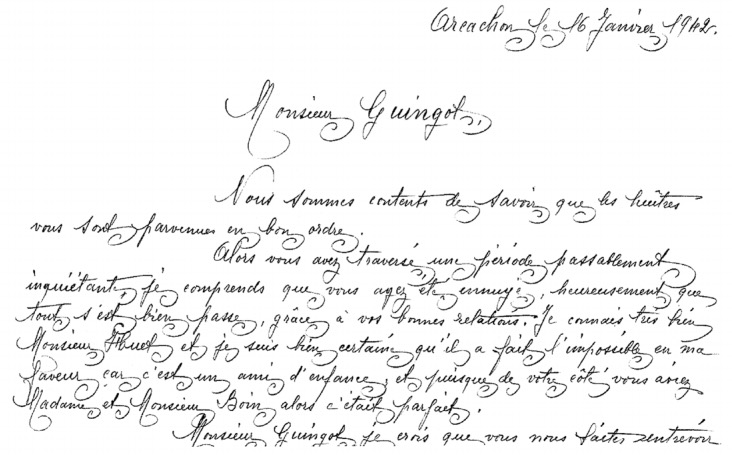 Arcachon le 16 Janvier 1942.
Monsieur Guingot,
Nous sommes contents de savoir que les huîtres
vous sont parvenues en bon ordre.
Alors vous avez traversé, une période passablement
inquiétante, je comprends que vous ayez été ennuyé, heureusement que
tout s'est bien passé, grâce à vos bonnes relations. Je connais très bien
Monsieur Huet et je suis bien certaine qu'il a fait l'impossible en ma
faveur car c'est un ami d'enfance, et puisque de votre côté vous aviez
Madame et Monsieur Boin alors c'était parfait.
Monsieur Guingot je crois que vous nous faites entrevoir